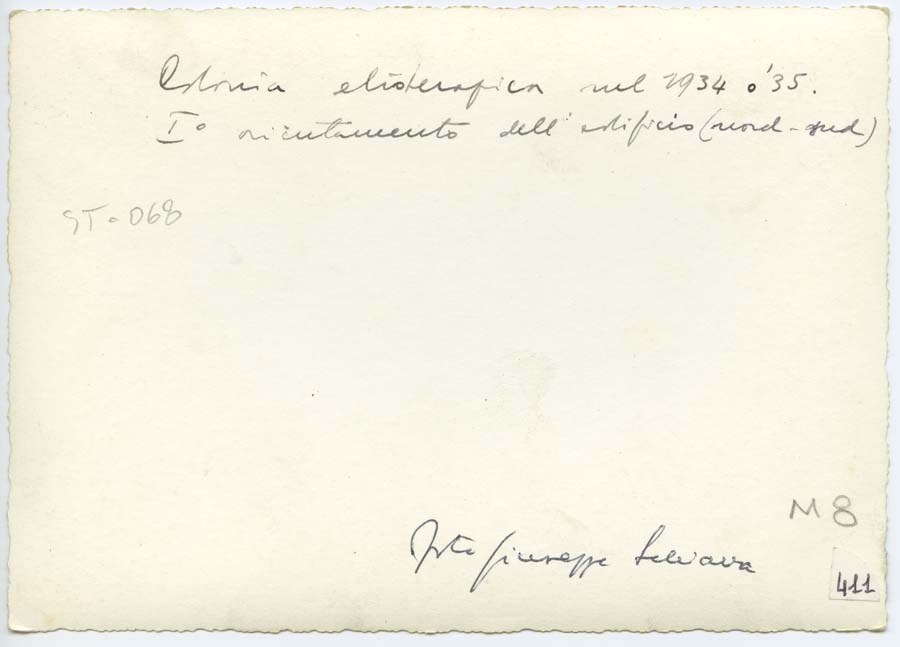 Colonia elioterapica nel 1934 o '35.
I° orientamento dell'edificio (nord-sud)
ST-068
M 8
Foto Giuseppe
411